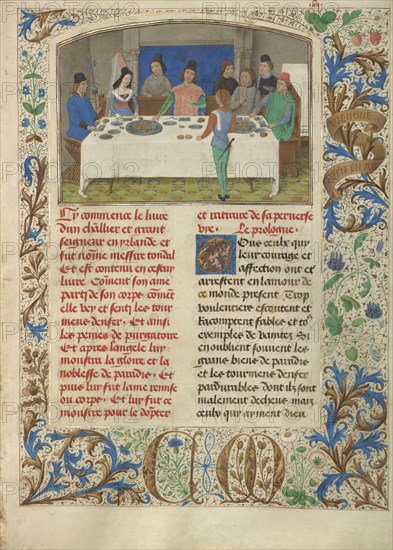 Cy commence le livre
dun chllier et grant
seigneur en yrlande et
fut nomme messire tondal
Et est contenu en cestuy
livre Coment son ame
parti de son corps coment
elle vey et senti les tour
mens denfer Et aussi
les peines de purgatoire
Et apres langele luy
moustra la gloire et la
noblesse de paradis Et
puis luy fut lame remise
ou corps Et luy fut ce
moustre pour le doubter
et retraire de sa perverse
vye Le prologue
Tous ceulx quy
leur courage et
affection ont et
arrestent en lamour de
ce monde present Trop
voulentiers escoutent et
racomptent fables et to
exemples de vanitez Si
en oublient souvent les
grans biens de paradis
et les tourmens denfer
pardurables dont ilz sont
malement deceuz mais
ceulx quy ayment dieu
CM